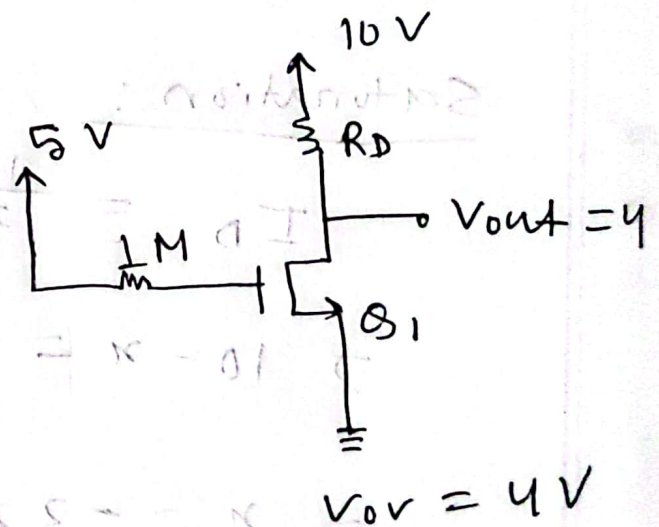 10 V
5 V
RD
Vout = 4
1 M
Q1
Vov = 4 V